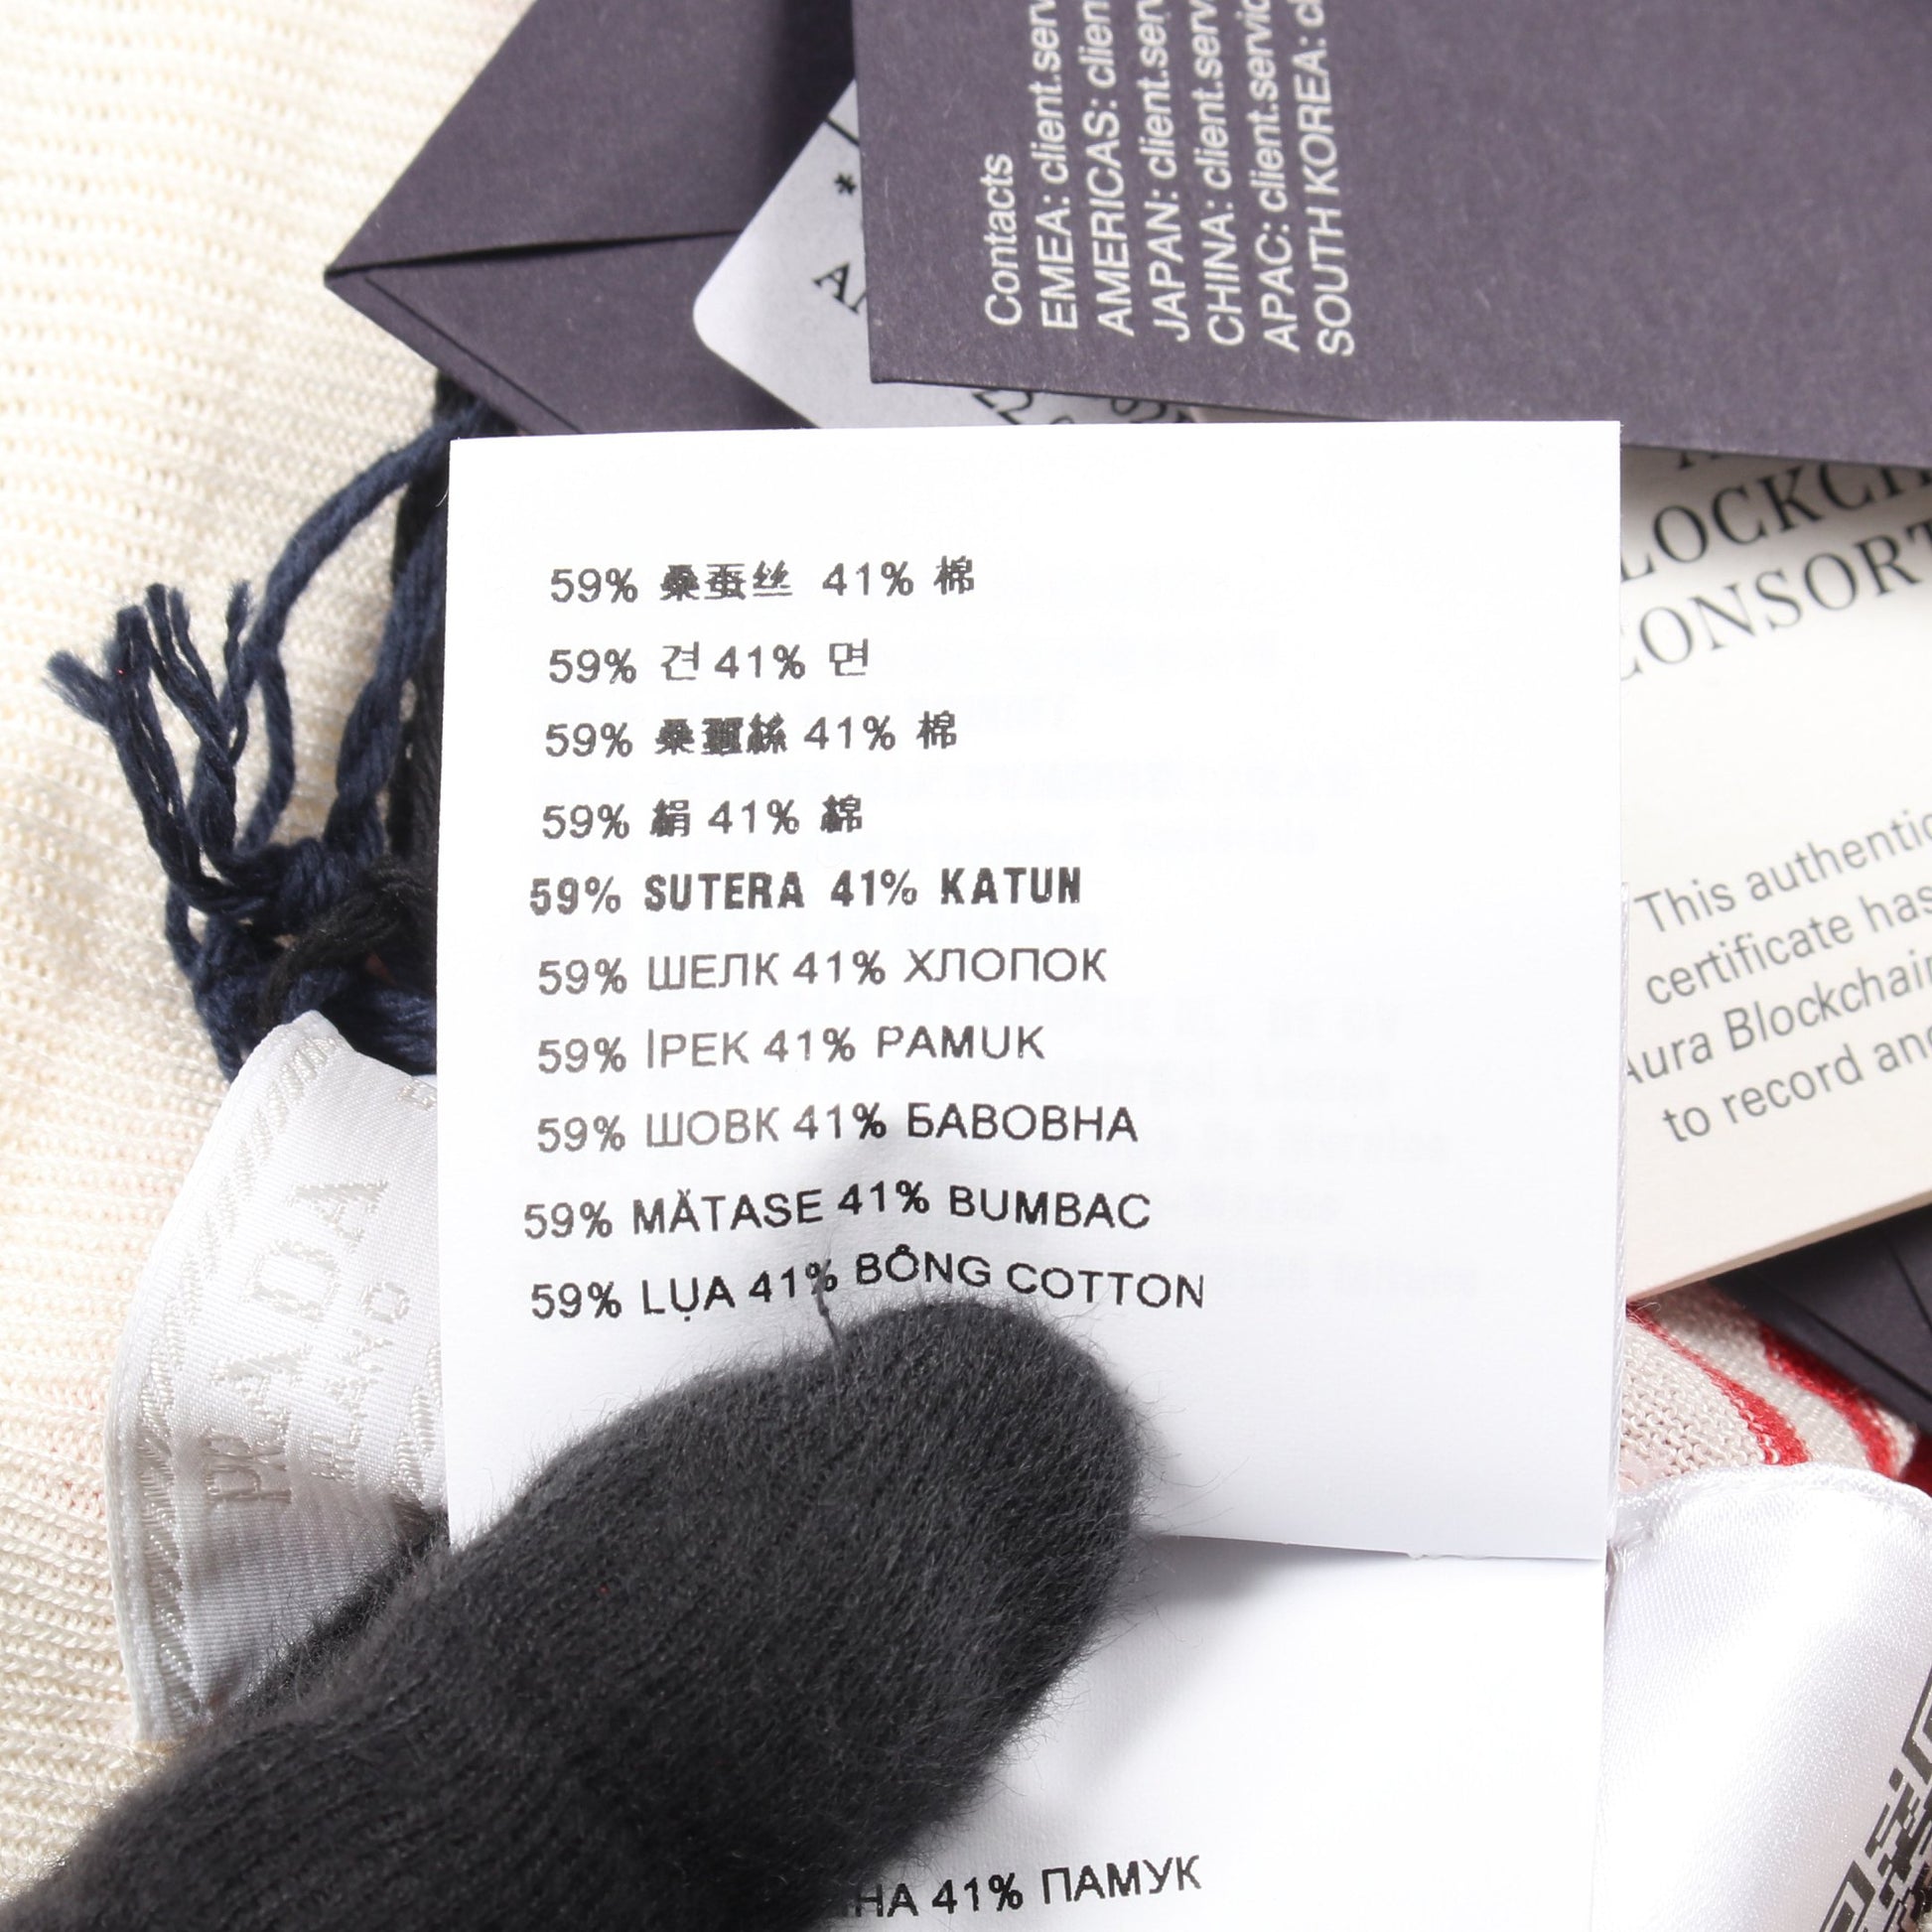 Contacts
EMEA: client.serv
AMERICAS: clien
JAPAN: client.serv
CHINA: client.serv
APAC: client.servic
SOUTH KOREA: cl
59% 桑蚕丝 41% 棉
59% 견 41% 면
59% 桑蠶絲 41% 棉
59% 絹 41% 綿
59% SUTERA 41% KATUN
59% ШЕЛК 41% ХЛОПОК
59% İPEK 41% PAMUK
59% ШОВК 41% БАВОВНА
59% MӐTASE 41% BUMBAC
59% LỤA 41% BÔNG COTTON
НА 41% ПАМУК
LOCKCH
CONSORT
This authentic
certificate has
Aura Blockchain
to record and